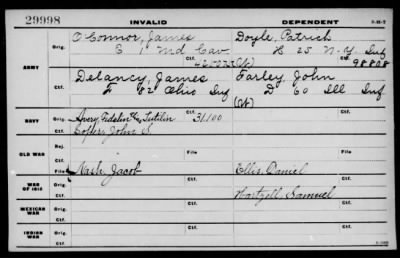 29998 INVALID DEPENDENT 3-H-7
O'Connor, James Doyle, Patrick
Orig. E 1 Md Cav H 25 N-Y Inf
Ctf. (W) 98808
ARMY
Delancy, James Farley, John
Orig. F 62 Ohio Inf D 60 Ill Inf
Ctf. (W)
NAVY Orig. Avery, Fidelin 31,100
Ctf. John S
Rej. File File
OLD WAR Ctf.
File Nash, Jacob Ellis, Daniel
WAR OF 1812 Orig.
Ctf. Hartzell, Samuel
MEXICAN WAR Orig.
Ctf.
INDIAN WAR Orig.
Ctf.